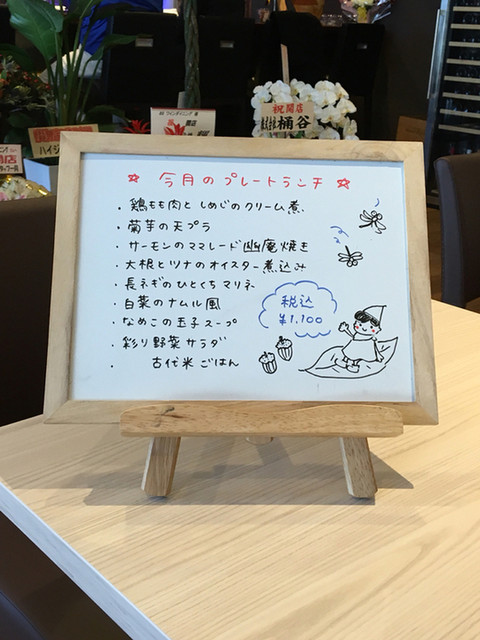 祝開店
桶谷
☆ 今月のプレートランチ ☆
・鶏もも肉と しめじのクリーム煮
・菊芋の天プラ
・サーモンのママレード幽庵焼き
・大根とツナのオイスター煮込み
・長ネギのひとくちマリネ
・白菜のナムル風
・なめこの玉子スープ
・彩り野菜サラダ
・古代米ごはん
税込
¥1,100